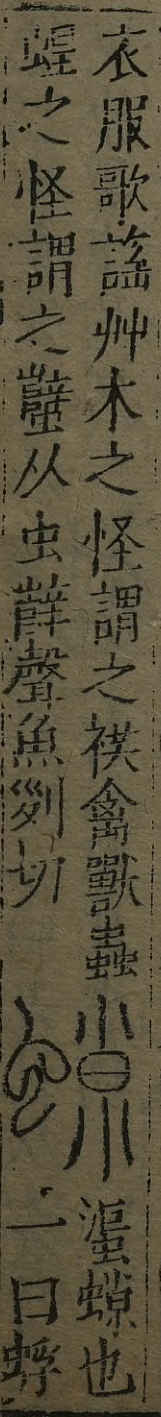 衣服歌謡艸木之怪謂之䄏禽獸蟲
蝗之怪謂之蠥从虫辥聲魚列切
也
一曰蜉